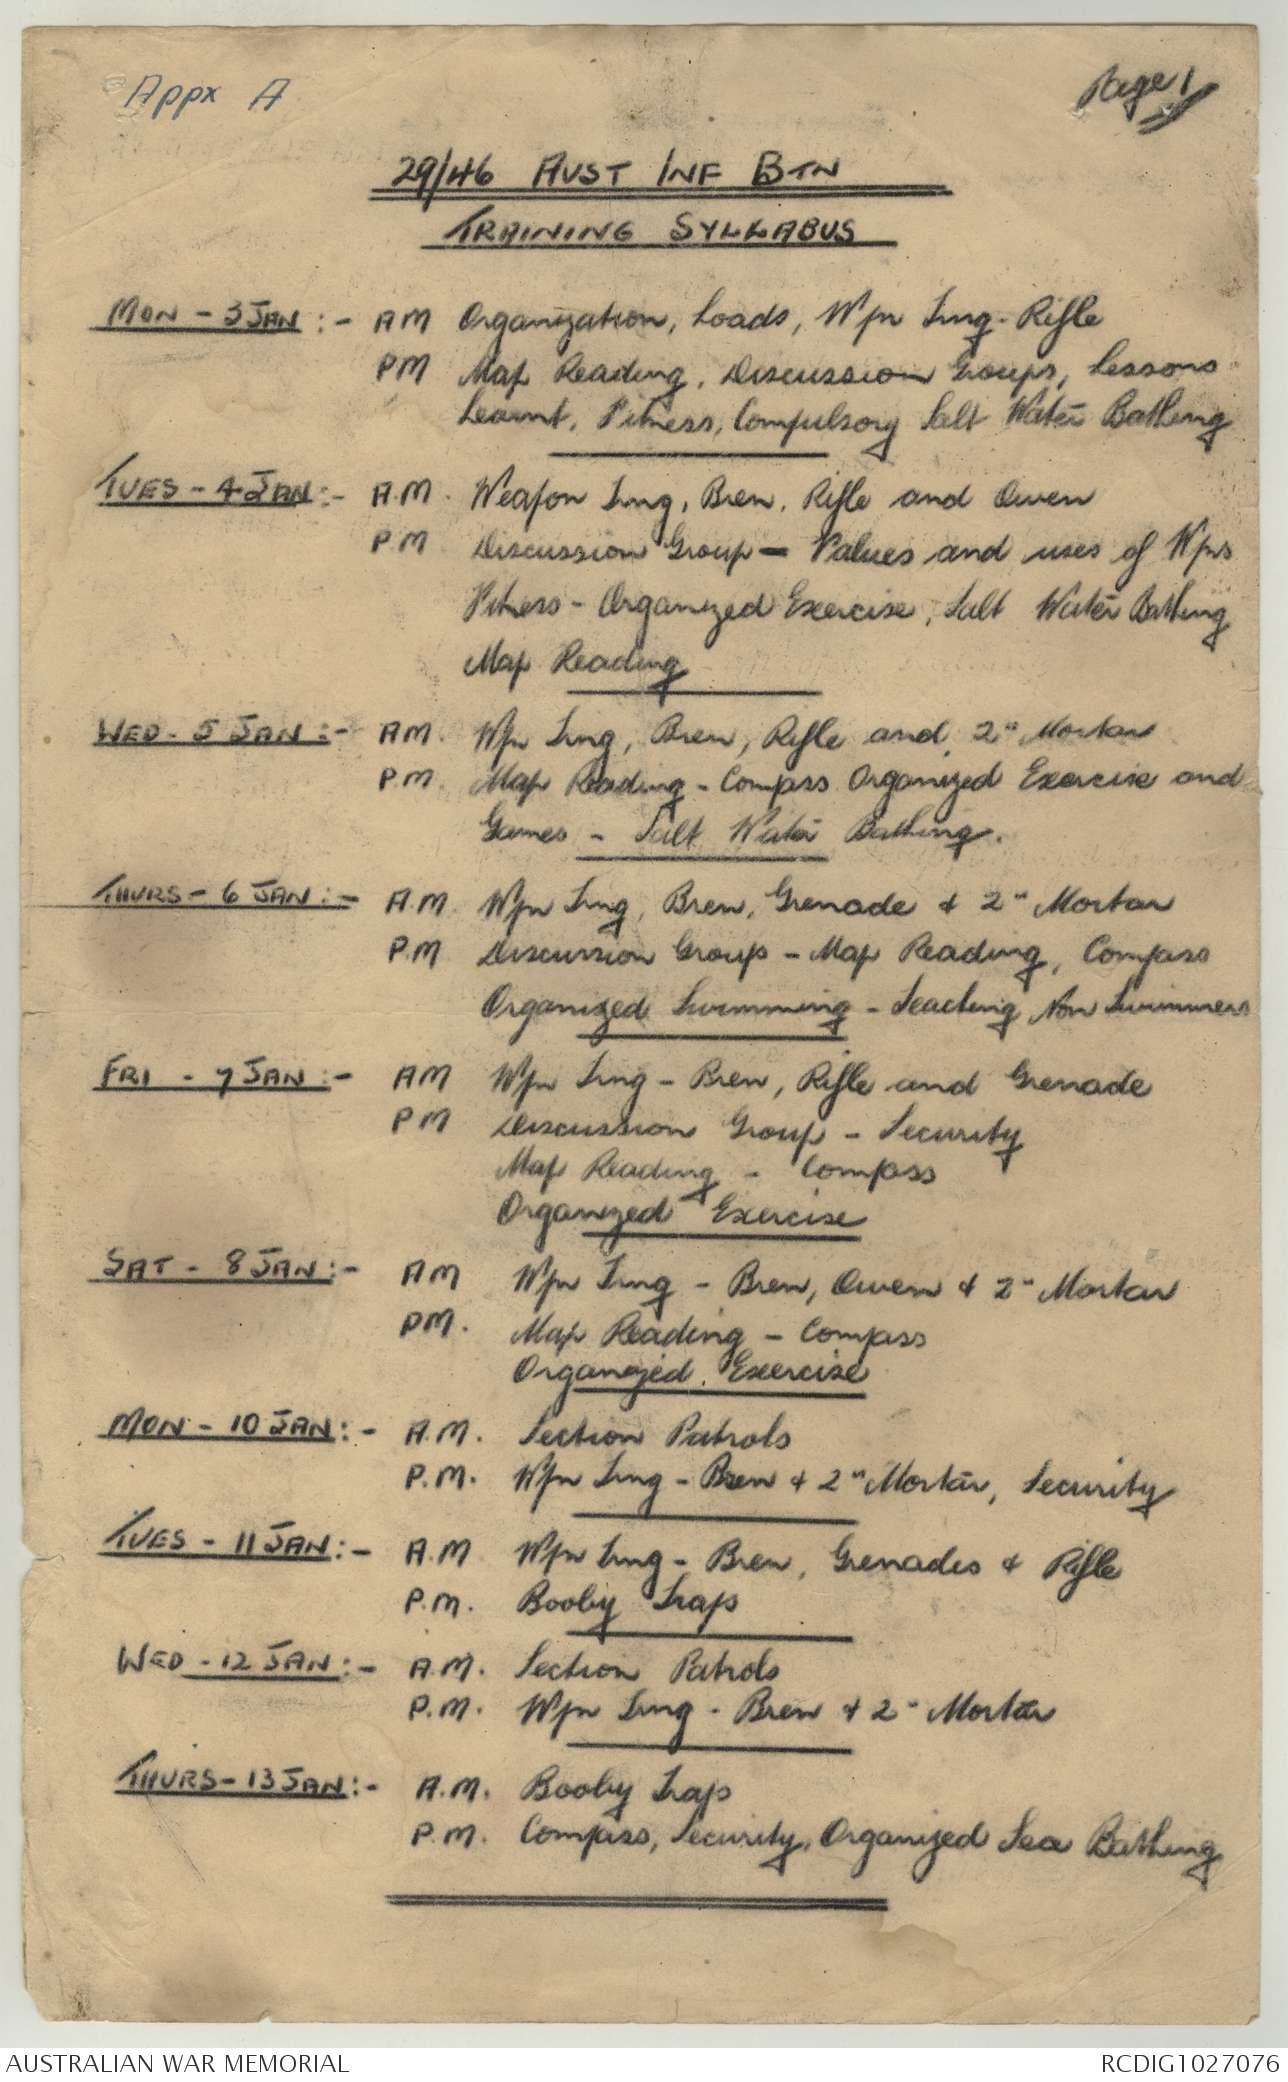 Appx A
Page 1
29/46 AUST INF BTN
TRAINING SYLLABUS
MON - 3 JAN :- AM Organization, Loads, Wpn Trng - Rifle
PM Map Reading, Discussion Groups, Lessons
Learnt, Fitness, Compulsory Salt Water Bathing
TUES - 4 JAN :- A.M. Weapon Trng, Bren, Rifle and Owen
PM Discussion Group - Values and uses of Wpns
Fitness - Organized Exercise, Salt Water Bathing
Map Reading
WED - 5 JAN :- AM. Wpn Trng, Bren, Rifle and 2" Mortar
PM. Map Reading - Compass Organized Exercise and
Games - Salt Water Bathing.
THURS - 6 JAN :- A.M. Wpn Trng, Bren, Grenade + 2" Mortar
P.M Discussion Group - Map Reading, Compass
Organized Swimming - Teaching Non Swimmers
FRI - 7 JAN :- AM Wpn Trng - Bren, Rifle and Grenade
PM Discussion Group - Security
Map Reading - Compass
Organized Exercise
SAT - 8 JAN :- AM Wpn Trng - Bren, Owen + 2" Mortar
PM. Map Reading - Compass
Organized Exercise
MON - 10 JAN :- A.M. Section Patrols
P.M. Wpn Trng - Bren + 2" Mortar, Security
TUES - 11 JAN :- A.M Wpn Trng - Bren, Grenades + Rifle
P.M. Booby Traps
WED - 12 JAN :- A.M. Section Patrols
P.M. Wpn Trng - Bren + 2" Mortar
THURS - 13 JAN :- A.M. Booby Traps
P.M. Compass, Security, Organized Sea Bathing
AUSTRALIAN WAR MEMORIAL
RCDIG1027076